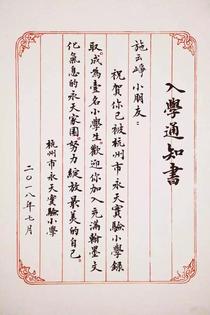 入學通知書
施云崢 小朋友：
祝賀你已被杭州市永天實驗小學錄
取，成為壹名小學生。歡迎你加入充滿翰墨文
化氣息的永天家園。努力綻放最美的自己。
杭州市永天實驗小學
二〇一八年七月